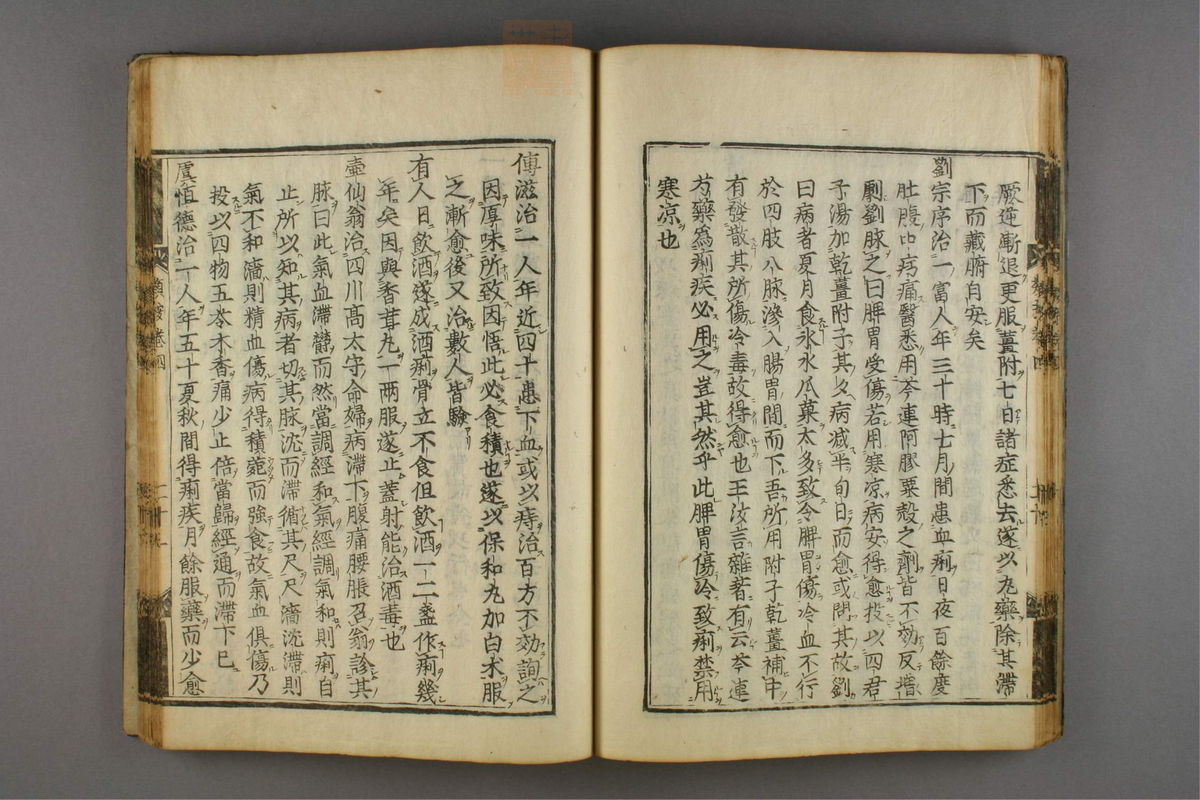 厥逆漸退更服薑附七日諸症悉去遂以丸藥除其滯
下而藏腑自安矣
劉宗序治一富人年三十時七月間患血痢日夜百餘度
肚腹中疞痛醫悉用芩連阿膠粟殼之劑皆不効反增
劇劉脉之曰脾胃受傷若用寒凉病安得愈投以四君
子湯加乾薑附子其夕病减半旬日而愈或問其故劉
曰病者夏月食氷水瓜菓太多致令脾胃傷冷血不行
於四肢八脉滲入腸胃間而下吾所用附子乾薑補中
有發散其所傷冷毒故得愈也王汝言雜著有云芩連
芍藥為痢疾必用之豈其然乎此脾胃傷冷致痢禁用
寒凉也
傅滋治一人年近四十患下血或以痔治百方不効詢之
因厚味所致因悟此必食積也遂以保和丸加白朮服
之漸愈後又治數人皆驗
有人日飲酒遂成酒痢骨立不食但飲酒一二盞作痢幾
年矣因與香茸丸一兩服遂止蓋射能治酒毒也
壺仙翁治四川髙太守命婦病滯下腹痛腰脹召翁診其
脉曰此氣血滯欝而然當調經和氣經調氣和則痢自
止所以知其病者切其脉沈而滯循其尺尺濇沈滯則
氣不和濇則精血傷病得積蔸而強食故氣血俱傷乃
投以四物五苓木香痛少止倍當歸經通而滯下已
虞恒德治一人年五十夏秋間得痢疾月餘服藥而少愈